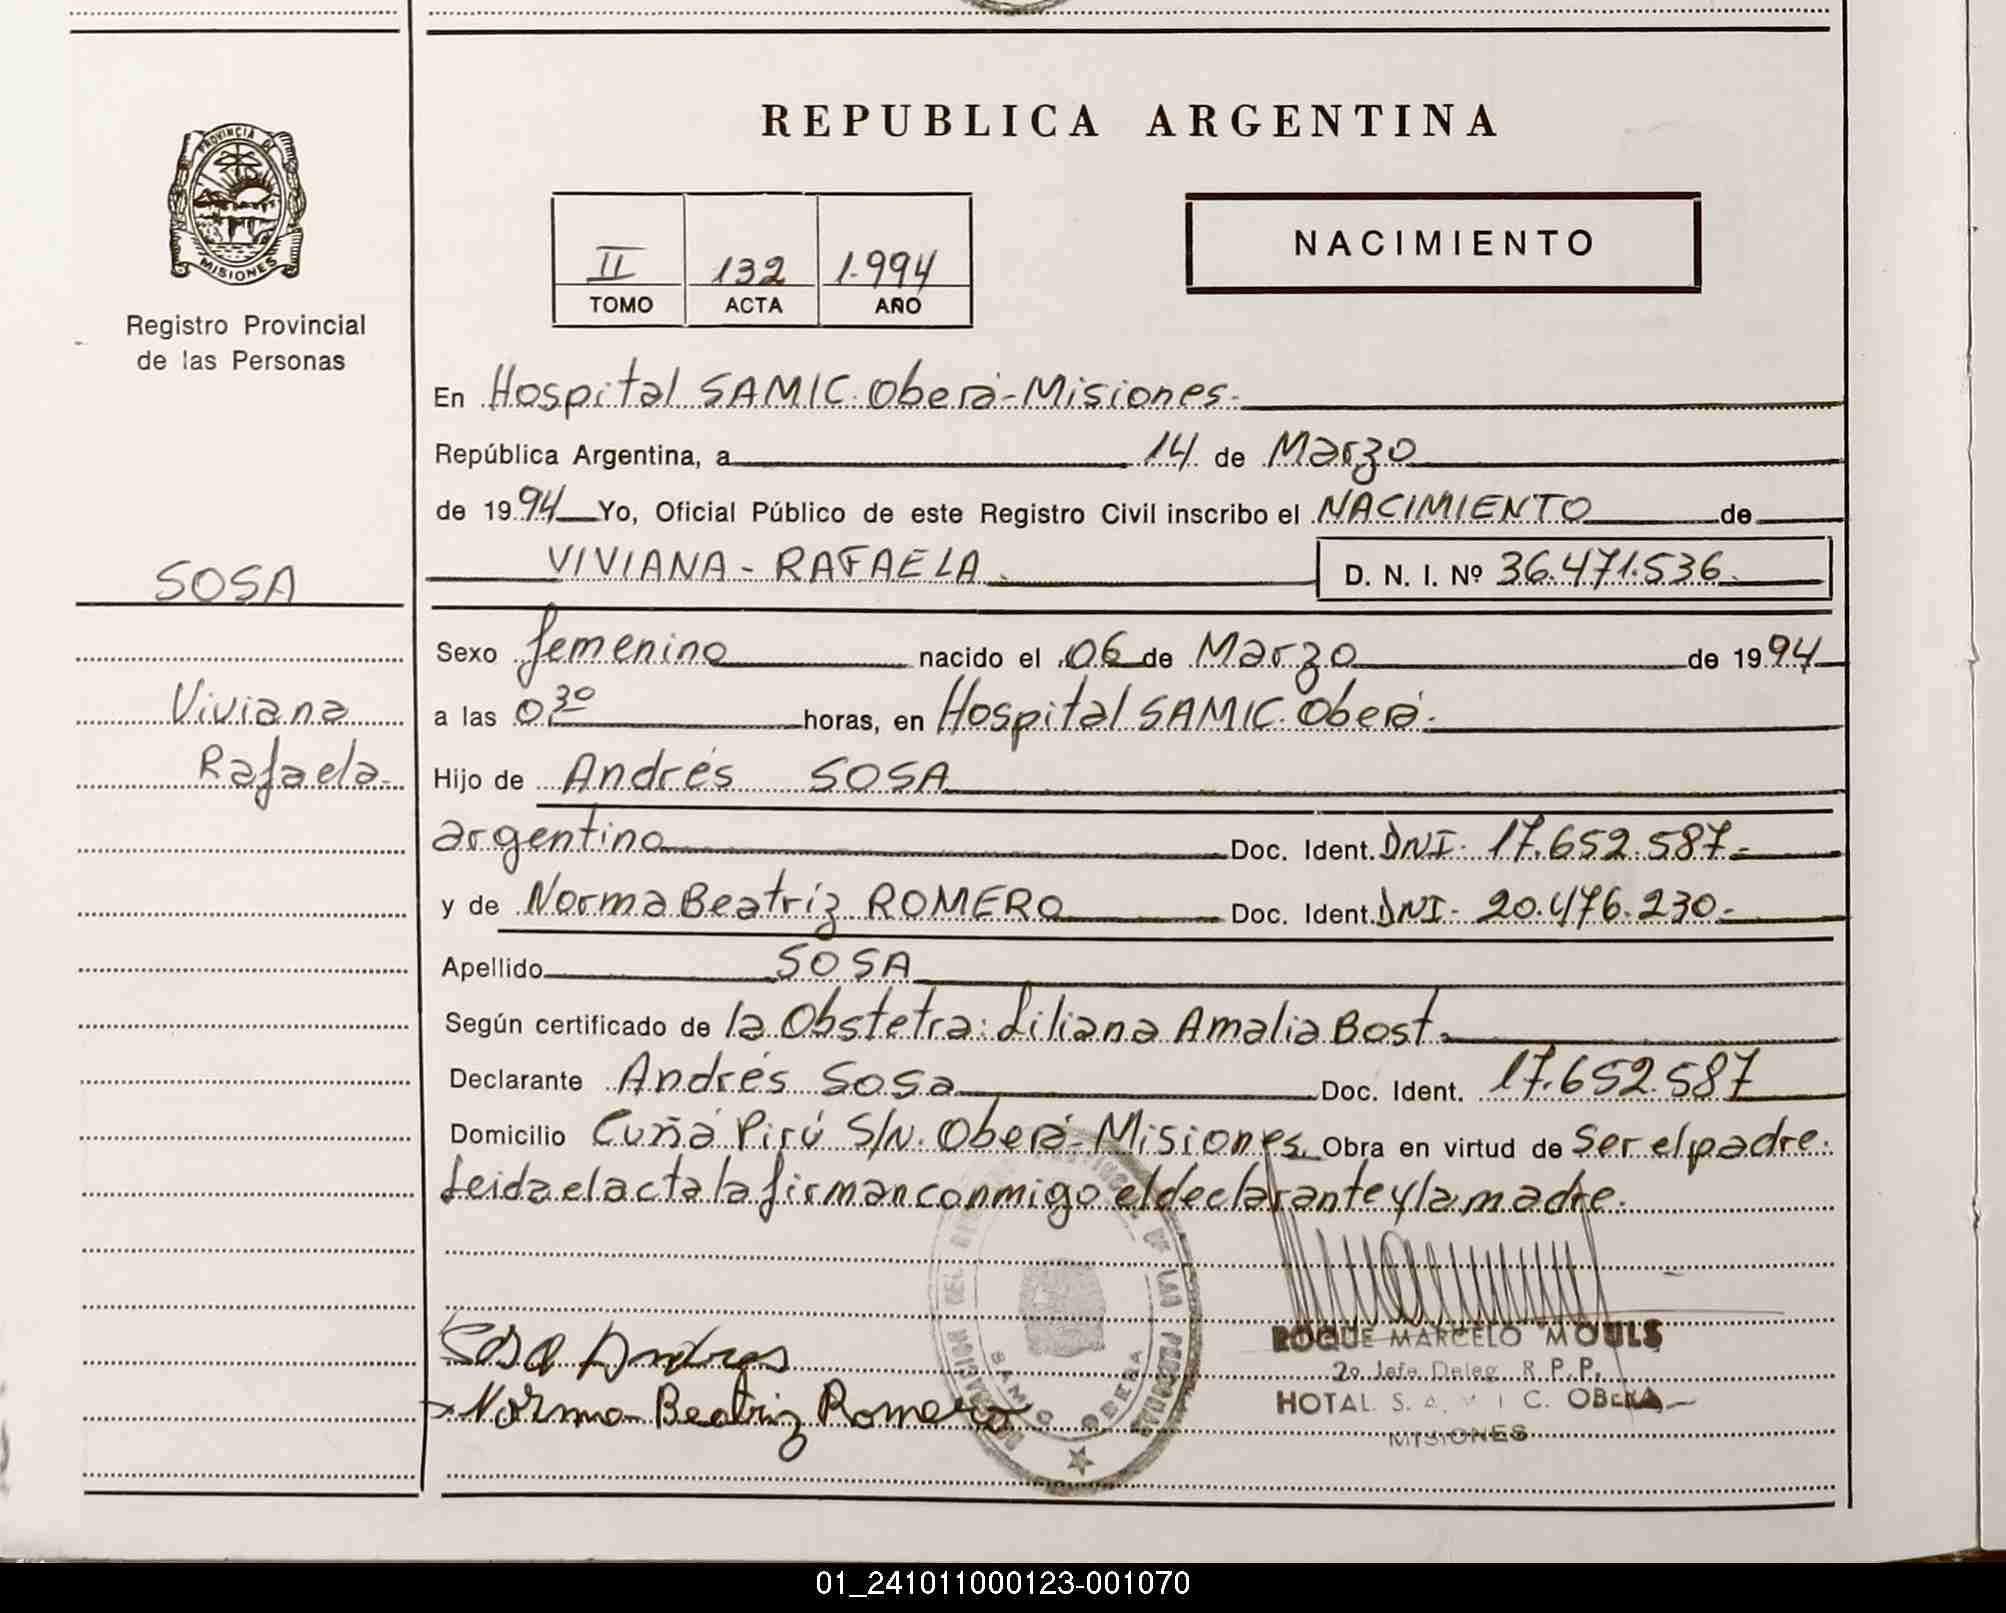 REPUBLICA ARGENTINA
PROVINCIA DE
MISIONES
Registro Provincial
de las Personas
II 132 1.994
TOMO ACTA AÑO
NACIMIENTO
En Hospital SAMIC. Oberá-Misiones.
República Argentina, a 14 de Marzo
de 1994 Yo, Oficial Público de este Registro Civil inscribo el NACIMIENTO de
VIVIANA - RAFAELA. D. N. I. Nº 36.471.536.
SOSA
Viviana
Rafaela.
Sexo femenino nacido el 06 de Marzo de 1994
a las 0,30 horas, en Hospital SAMIC. Oberá.
Hijo de Andrés SOSA
argentino Doc. Ident. DNI. 17.652.587.-
y de Norma Beatríz ROMERO Doc. Ident. DNI- 20.476.230.-
Apellido SOSA
Según certificado de la Obstetra: Liliana Amalia Bost.
Declarante Andrés Sosa Doc. Ident. 17.652.587
Domicilio Cuñá Pirú S/N. Oberá-Misiones. Obra en virtud de Ser el padre.
Leida el acta la firman conmigo el declarante y la madre.
Sosa Andres
Norma Beatriz Romero
DE LAS PERSONAS
SAMIC OBERA
ROQUE MARCELO MOULS
2º Jefe Deleg. R. P. P.
HOTAL. S. A. M I C. OBERA
MISIONES
01_241011000123-001070